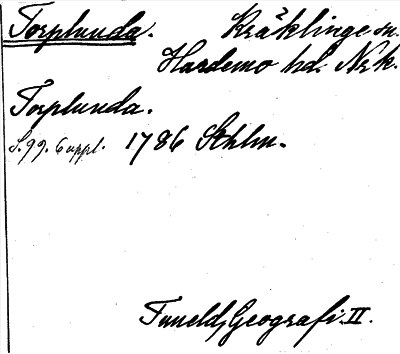 Torplunda. Kräcklinge sn.
Hardemo hd. Nrk.
Torplunda.
S. 99. Suppl. 1786 Sthlm.
Tuneld, Geografi. II.